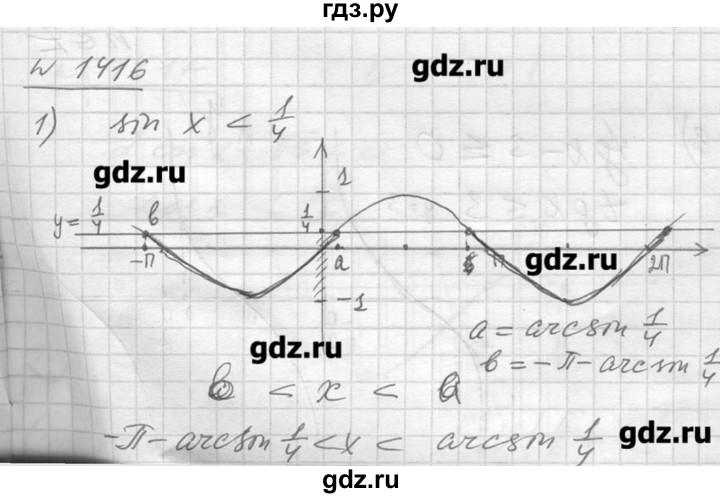 гдз.ру
№ 1416
gdz.ru
1) sin x < 1/4
gdz.ru
1
y = 1/4
в
1/4
-π
a
π
2π
gdz.ru
-1
a = arcsin 1/4
в = -π - arcsin 1/4
gdz.ru
в < x < a
-π - arcsin 1/4 < x < arcsin 1/4
gdz.ru
gdz.ru